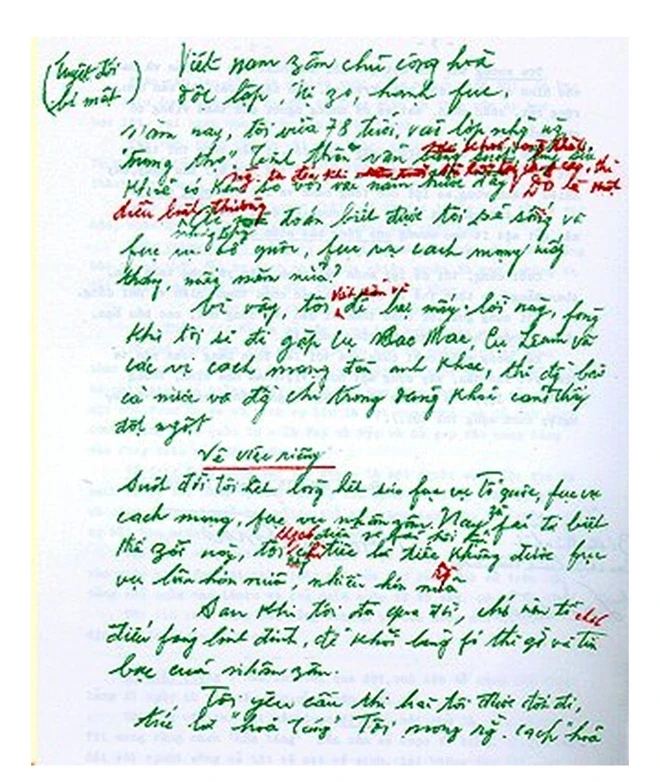 (Tuyệt đối
bí mật)
Việt nam zân chủ cộng hoà
độc lập, tự zo, hạnh fúc
Năm nay, tôi vừa 78 tuổi, vào lớp những
"trung thọ". Tinh thần vẫn
sức khoẻ có kém so với vài năm trước đây. Đó là một
điều bình thường
toán biết được tôi sẽ sống và
fục vụ tổ quốc, fục vụ cách mạng mấy
tháng, mấy năm nữa?
Vì vậy, tôi viết sẵn để lại mấy lời này, fòng
khi tôi sẽ đi gặp cụ Các Mác, cụ Lênin và
các vị cách mạng đàn anh khác, thì đồng bào
cả nước và đồng chí trong đảng khỏi cảm thấy
đột ngột
Về việc riêng
Suốt đời tôi hết lòng hết sức fục vụ Tổ quốc, fục vụ
cách mạng, fục vụ nhân zân. Nay zù fải từ biệt
thế zới này, tôi chỉ tiếc là tiếc không được fục
vụ lâu hơn nữa, nhiều hơn nữa
Sau khi tôi đã qua đời, chớ nên tổ chức
điếu fúng linh đình, để khỏi lãng fí thì zờ và tiền
bạc của nhân zân.
Tôi yêu cầu thi hài tôi được đốt đi,
tức là "hoả táng". Tôi mong rằng cách "hoả